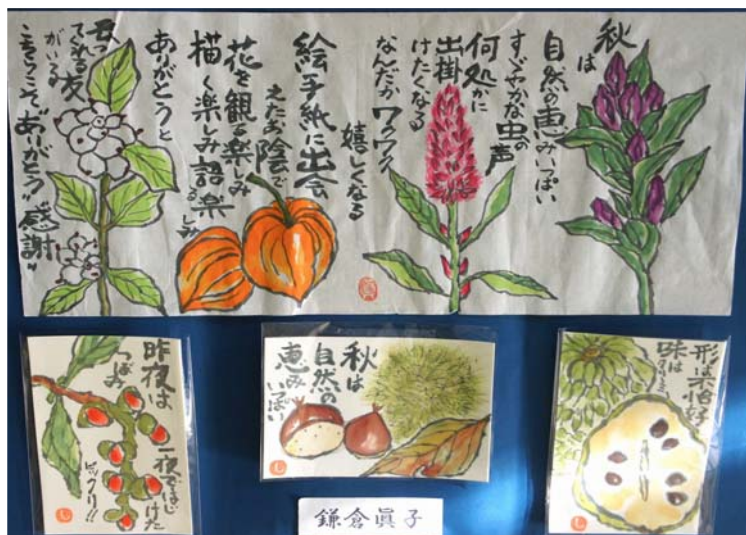 秋は
自然の恵みいっぱい
すゞやかな虫の声
何処かに
出掛
けたくなる
なんだかワクワク
嬉しくなる
絵手紙に出会
えたお陰で
花を観る楽しみ
描く楽しみ語る楽しみ
ありがとうと
云ってくれる友
がいる
こちらこそ"ありがとう"感謝"
昨夜は
つぼみ
一夜ではじ
けた
ビックリ!!
秋は
自然の
恵み
いっぱい
形は不恰好
味は
鎌倉眞子